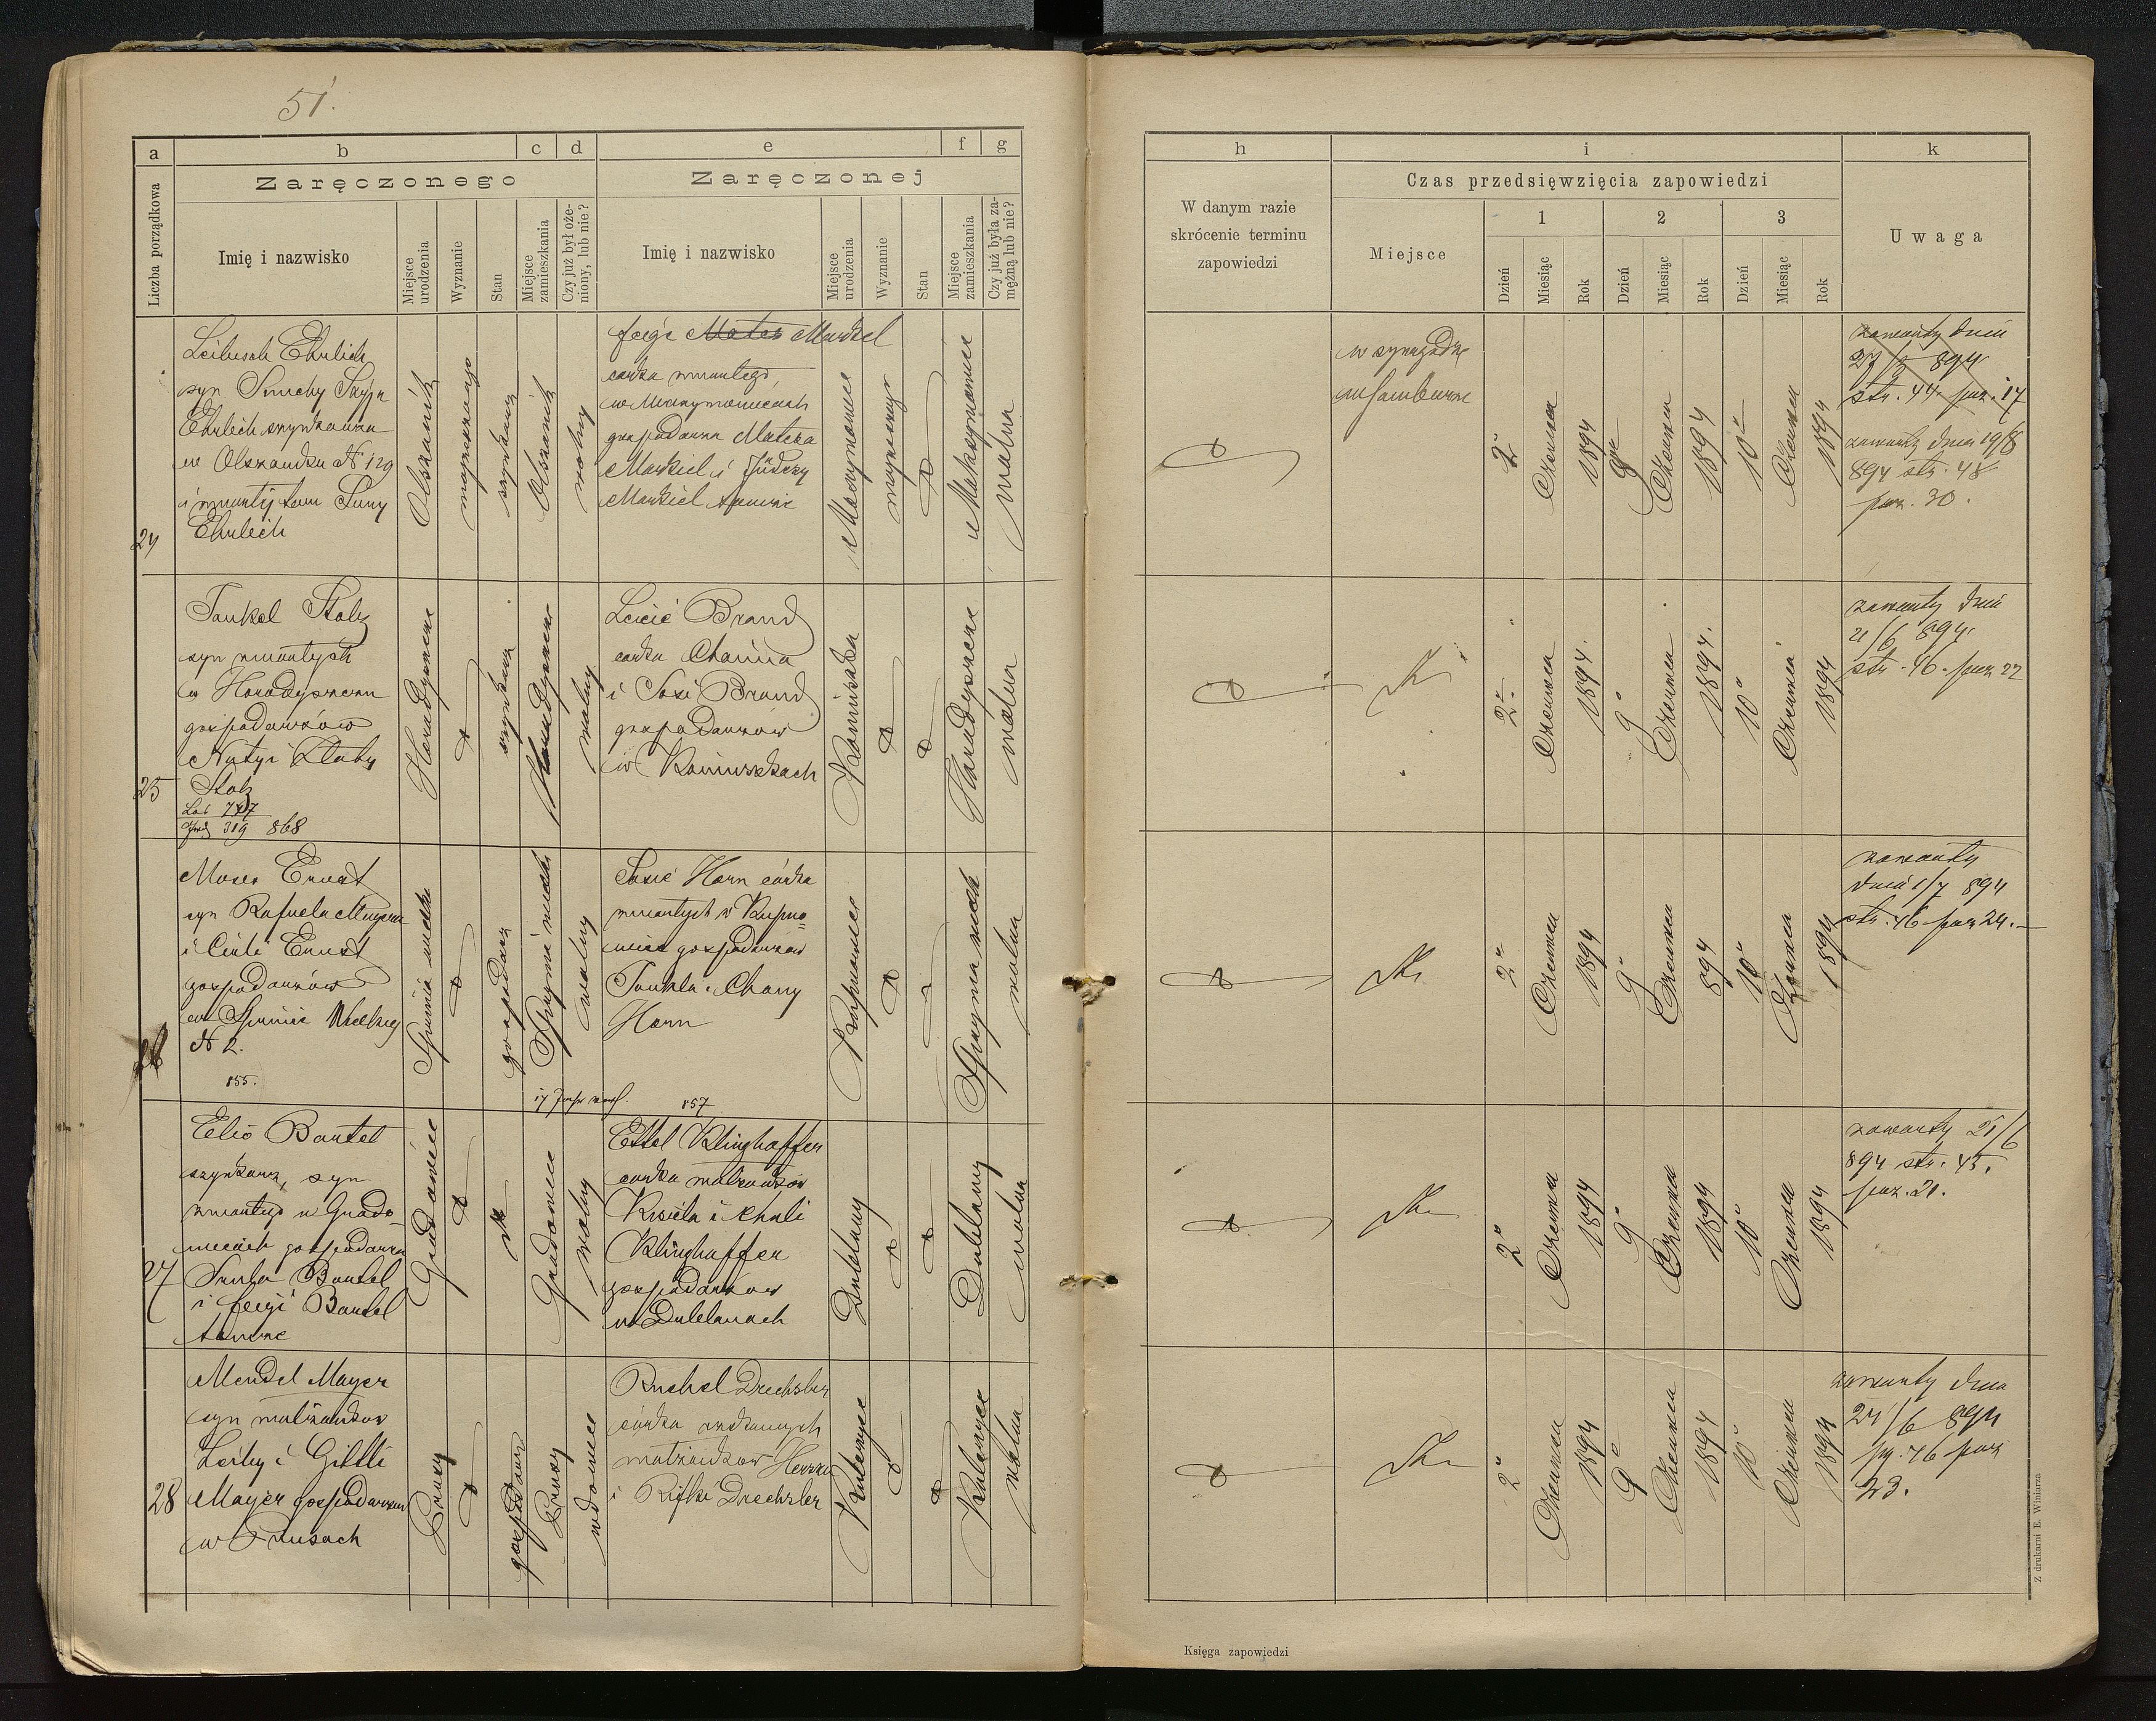 51.
a
b
c
d
e
f
g
Zaręczonego
Zaręczonej
Liczba porządkowa
Imię i nazwisko
Miejsce urodzenia
Wyznanie
Stan
Miejsce zamieszkania
Czy już był ożeniony, lub nie?
Imię i nazwisko
Miejsce urodzenia
Wyznanie
Stan
Miejsce zamieszkania
Czy już była zamężną lub nie?
24
Leibisch Ehrlich
syn Simchy
Ehrlich szynkarza
w Olszaniku N 129
i zmarłej tam Sury
Ehrlich
Olszanik
mojżeszowego
szynkarz
Olszanik
wolny
Feige Mates Markel
córka zmarłego
w Maxymowicach
gospodarza Matesa
Markiel i
Markiel
Maxymowice
Maksymowice
wolna
25
Jankel Stolz
syn zmarłych
w Horodyszczu
gospodarzów
Nuty i
Stolz
319 868
wolny
Leić Brand
córka Chaima
i Sosi Brand
gospodarzów
w Koniuszkach
wolna
26
Moses Ernst
syn Rafaela
i Ciuti Ernst
gospodarzów
w Spryni Wielkiej
N 2.
855.
gospodarz
wolny
Sosie Horn córka
zmarłych w Kupno=
wice gospodarzów
Jankla i Chany
Horn
857
Kupnowice
wolna
27
Elio Bantel
szynkarz, syn
zmarłego w Grado=
wicach gospodarza
Bantel
i Feigi Bantel
Gradowice
Gradowice
wolny
Ettel Klinghoffer
córka małżonków
Kisiela i Chali
Klinghoffer
gospodarzów
w Dublanach
Dublany
Dublany
wolna
28
Mendel Mayer
syn małżonków
Leiby i Gittli
Mayer gospodarzów
w Prusach
Prusy
gospodarz
Prusy
wdowiec
Ruchel Drechsler
córka
małżonków Hersza
i Rifki Drechsler
wolna
h
i
k
W danym razie
skrócenie terminu
zapowiedzi
Czas przedsięwzięcia zapowiedzi
Miejsce
1
2
3
Dzień
Miesiąc
Rok
Dzień
Miesiąc
Rok
Dzień
Miesiąc
Rok
Uwaga
w synagodze
w Samborze
2 Czerwca 1894
9 Czerwca 1894
10 Czerwca 1894
zawarty dnia
27/5 894
str. 44. poz. 17
zawarty dnia 19/8
894 str. 48
poz. 30.
2 Czerwca 1894.
9 Czerwca 1894.
10 Czerwca 1894
zawarty dnia
21/6 894
str. 46. poz 22
2 Czerwca 1894
9 Czerwca 894
10 Czerwca 1894
zawarty
dnia 1/7 894
str. 46 poz 24.
2 Czerwca 1894
9 Czerwca 1894
10 Czerwca 1894
zawarty 21/6
894 str. 45.
poz. 21.
2 Czerwca 1894
9 Czerwca 1894
10 Czerwca 1894
zawarty dnia
24/6 894
pg. 46 poz
23.
Z drukarni E. Winiarza
Księga zapowiedzi